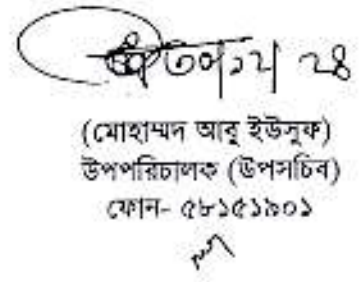 ৩০|১২| ২৪
(মোহাম্মদ আবু ইউসুফ)
উপপরিচালক (উপসচিব)
ফোন- ৫৮১৫১৯০১